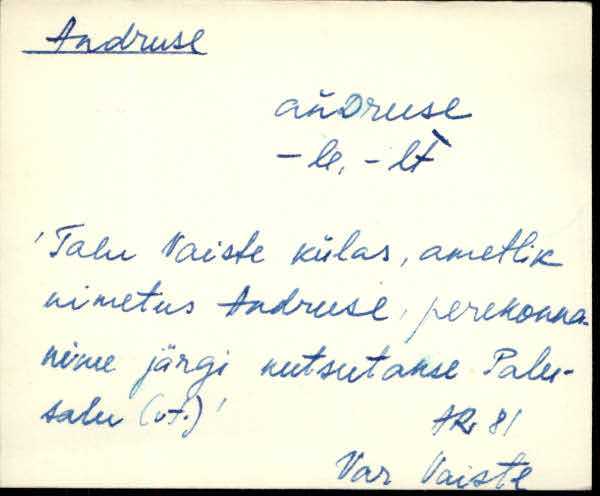 Andruse
añDruse
-le, -lt̀
'Talu Vaiste külas, ametlik
nimetus Andruse, perekonna-
nime järgi kutsutakse Palu-
salu (vt.)'
AR, 81
Var Vaiste